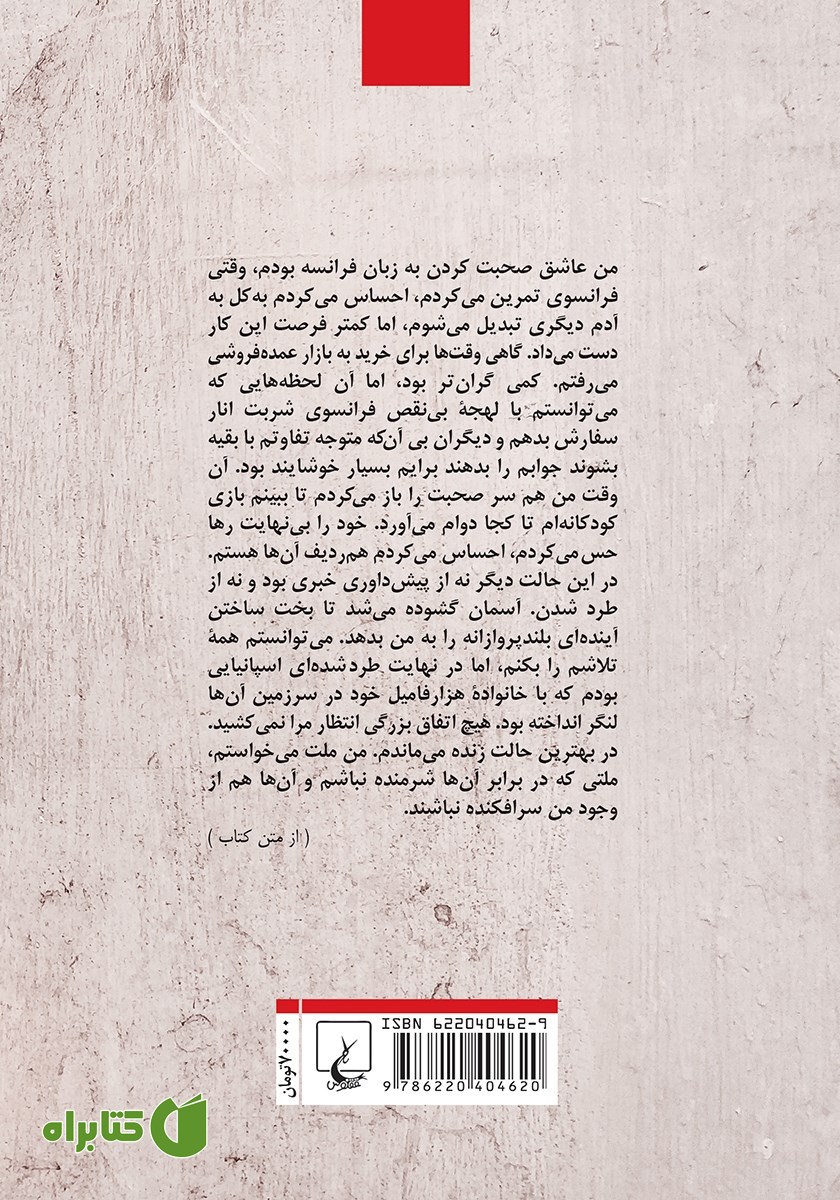 من عاشق صحبت کردن به زبان فرانسه بودم، وقتی
فرانسوی تمرین می‌کردم، احساس می‌کردم به‌کل به
آدم دیگری تبدیل می‌شوم، اما کمتر فرصت این کار
دست می‌داد. گاهی وقت‌ها برای خرید به بازار عمده‌فروشی
می‌رفتم. کمی گران‌تر بود، اما آن لحظه‌هایی که
می‌توانستم با لهجهٔ بی‌نقص فرانسوی شربت انار
سفارش بدهم و دیگران بی آن‌که متوجه تفاوتم با بقیه
بشوند جوابم را بدهند برایم بسیار خوشایند بود. آن
وقت من هم سر صحبت را باز می‌کردم تا ببینم بازی
کودکانه‌ام تا کجا دوام می‌آورد. خود را بی‌نهایت رها
حس می‌کردم، احساس می‌کردم هم‌ردیف آن‌ها هستم.
در این حالت دیگر نه از پیش‌داوری خبری بود و نه از
طرد شدن. آسمان گشوده می‌شد تا بخت ساختن
آینده‌ای بلندپروازانه را به من بدهد. می‌توانستم همهٔ
تلاشم را بکنم، اما در نهایت طردشده‌ای اسپانیایی
بودم که با خانوادهٔ هزارفامیل خود در سرزمین آن‌ها
لنگر انداخته بود. هیچ اتفاق بزرگی انتظار مرا نمی‌کشید.
در بهترین حالت زنده می‌ماندم. من ملت می‌خواستم،
ملتی که در برابر آن‌ها شرمنده نباشم و آن‌ها هم از
وجود من سرافکنده نباشند.
( از متن کتاب )
ISBN 622040462-9
9 786220 404620
۷۰۰۰۰ تومان
ققنوس
کتابراه